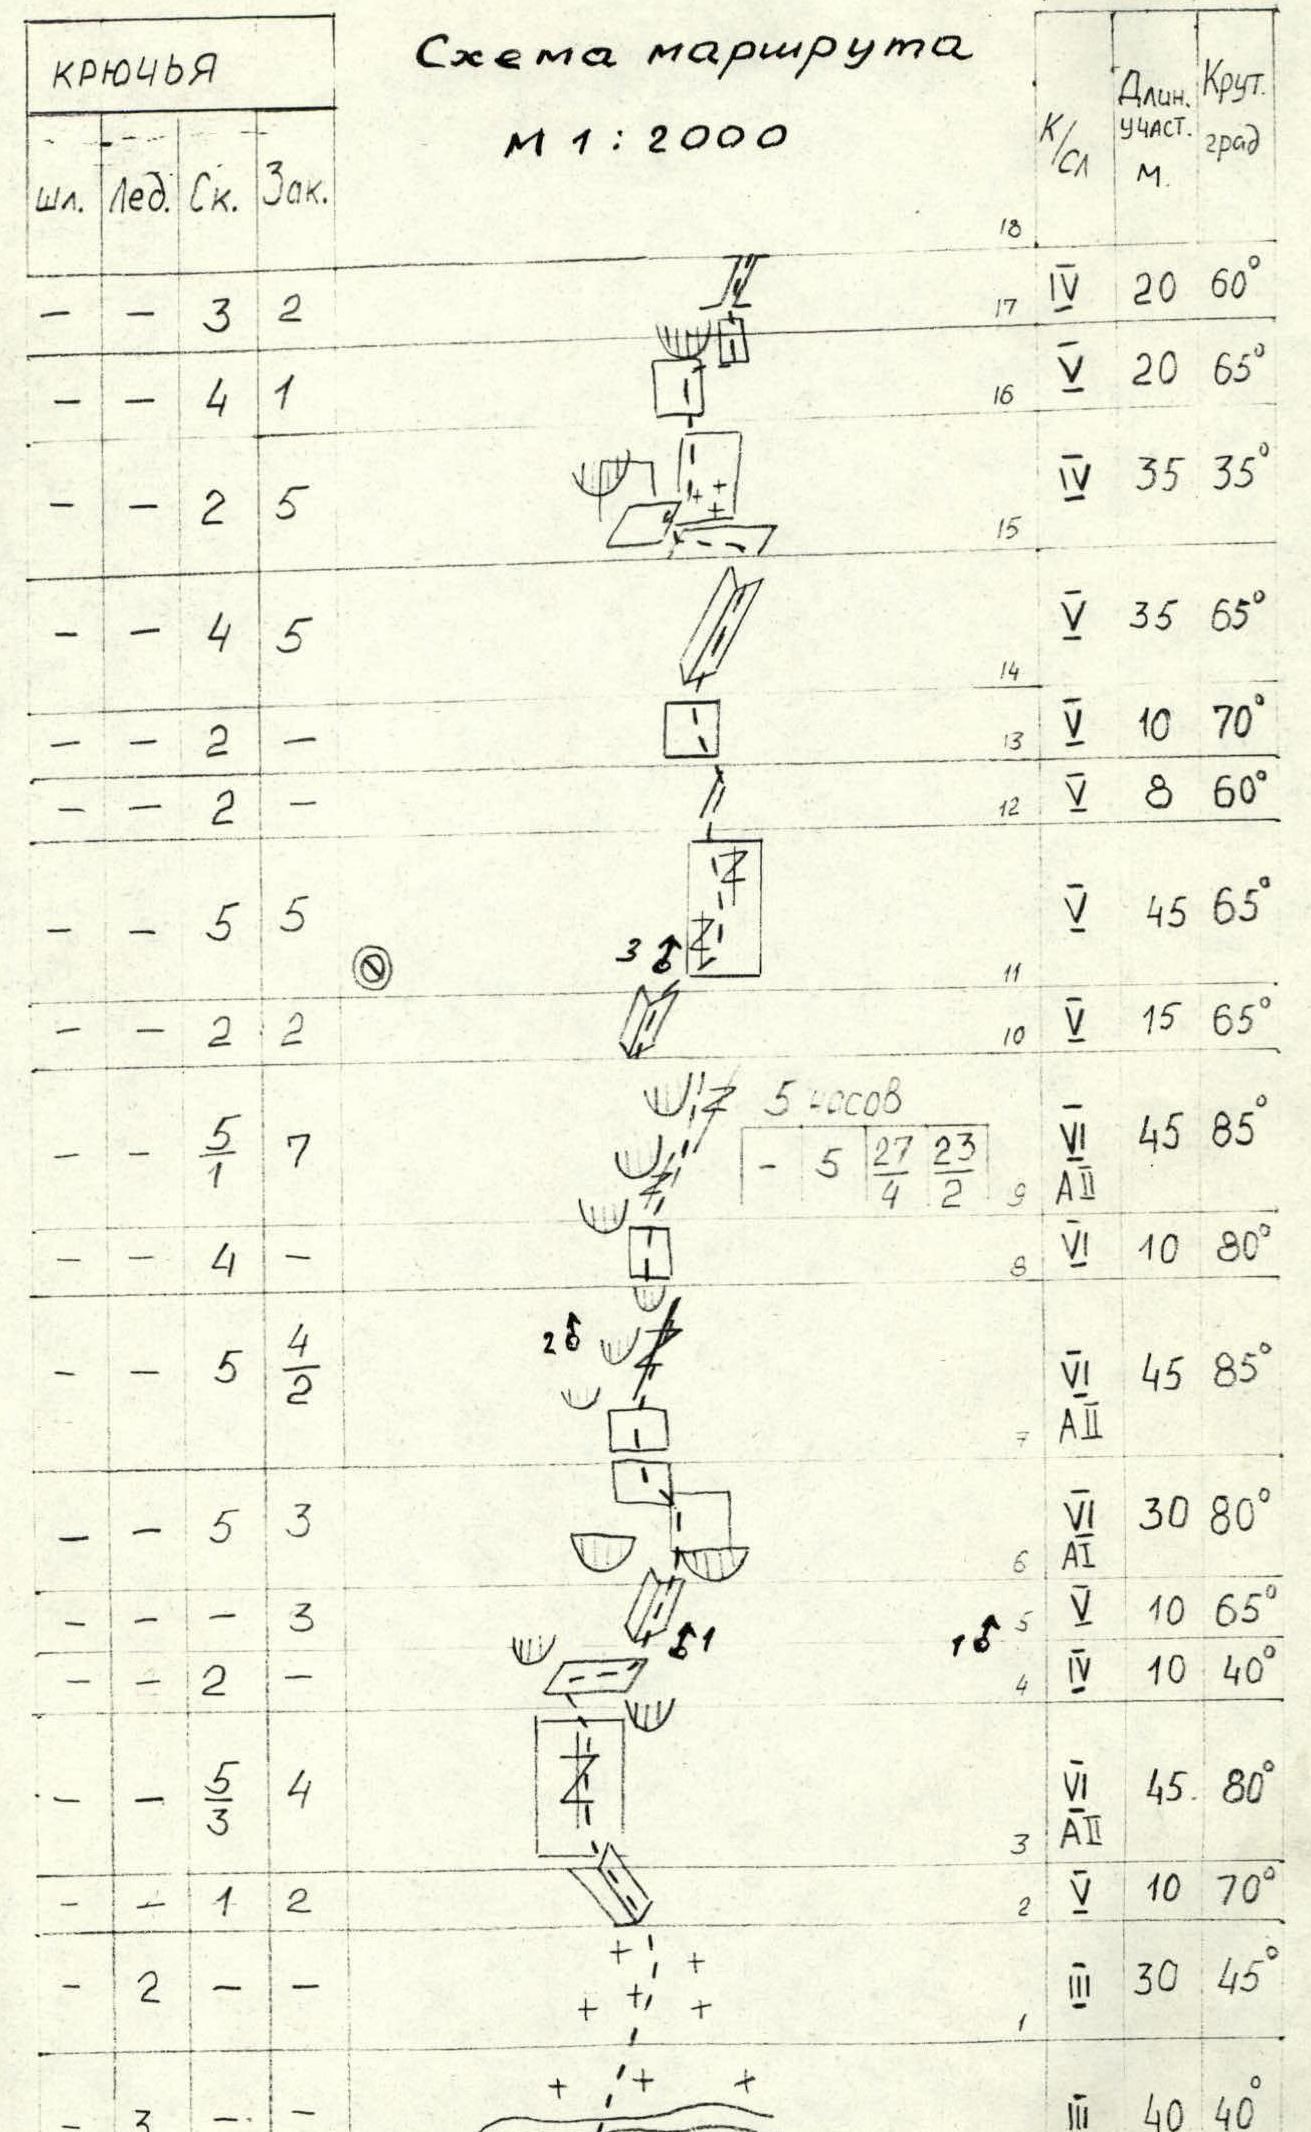 КРЮЧЬЯ
Схема маршрута
М 1 : 2000
шл. Лед. Ск. Зак.
К/сл
Длин. участ. м.
Крут. град
18
– – 3 2
17 IV 20 60°
– – 4 1
16 V 20 65°
– – 2 5
15 IV 35 35°
– – 4 5
14 V 35 65°
– – 2 –
13 V 10 70°
– – 2 –
12 V 8 60°
– – 5 5
3
11 V 45 65°
– – 2 2
10 V 15 65°
– – 5/1 7
5 часов
– 5 27/4 23/2
9 VI АII 45 85°
– – 4 –
8 VI 10 80°
– – 5 4/2
2
7 VI АII 45 85°
– – 5 3
6 VI АI 30 80°
– – – 3
1
1
5 V 10 65°
– – 2 –
4 IV 10 40°
– – 5/3 4
3 VI АII 45 80°
– – 1 2
2 V 10 70°
– 2 – –
1 III 30 45°
– 3 – –
III 40 40°